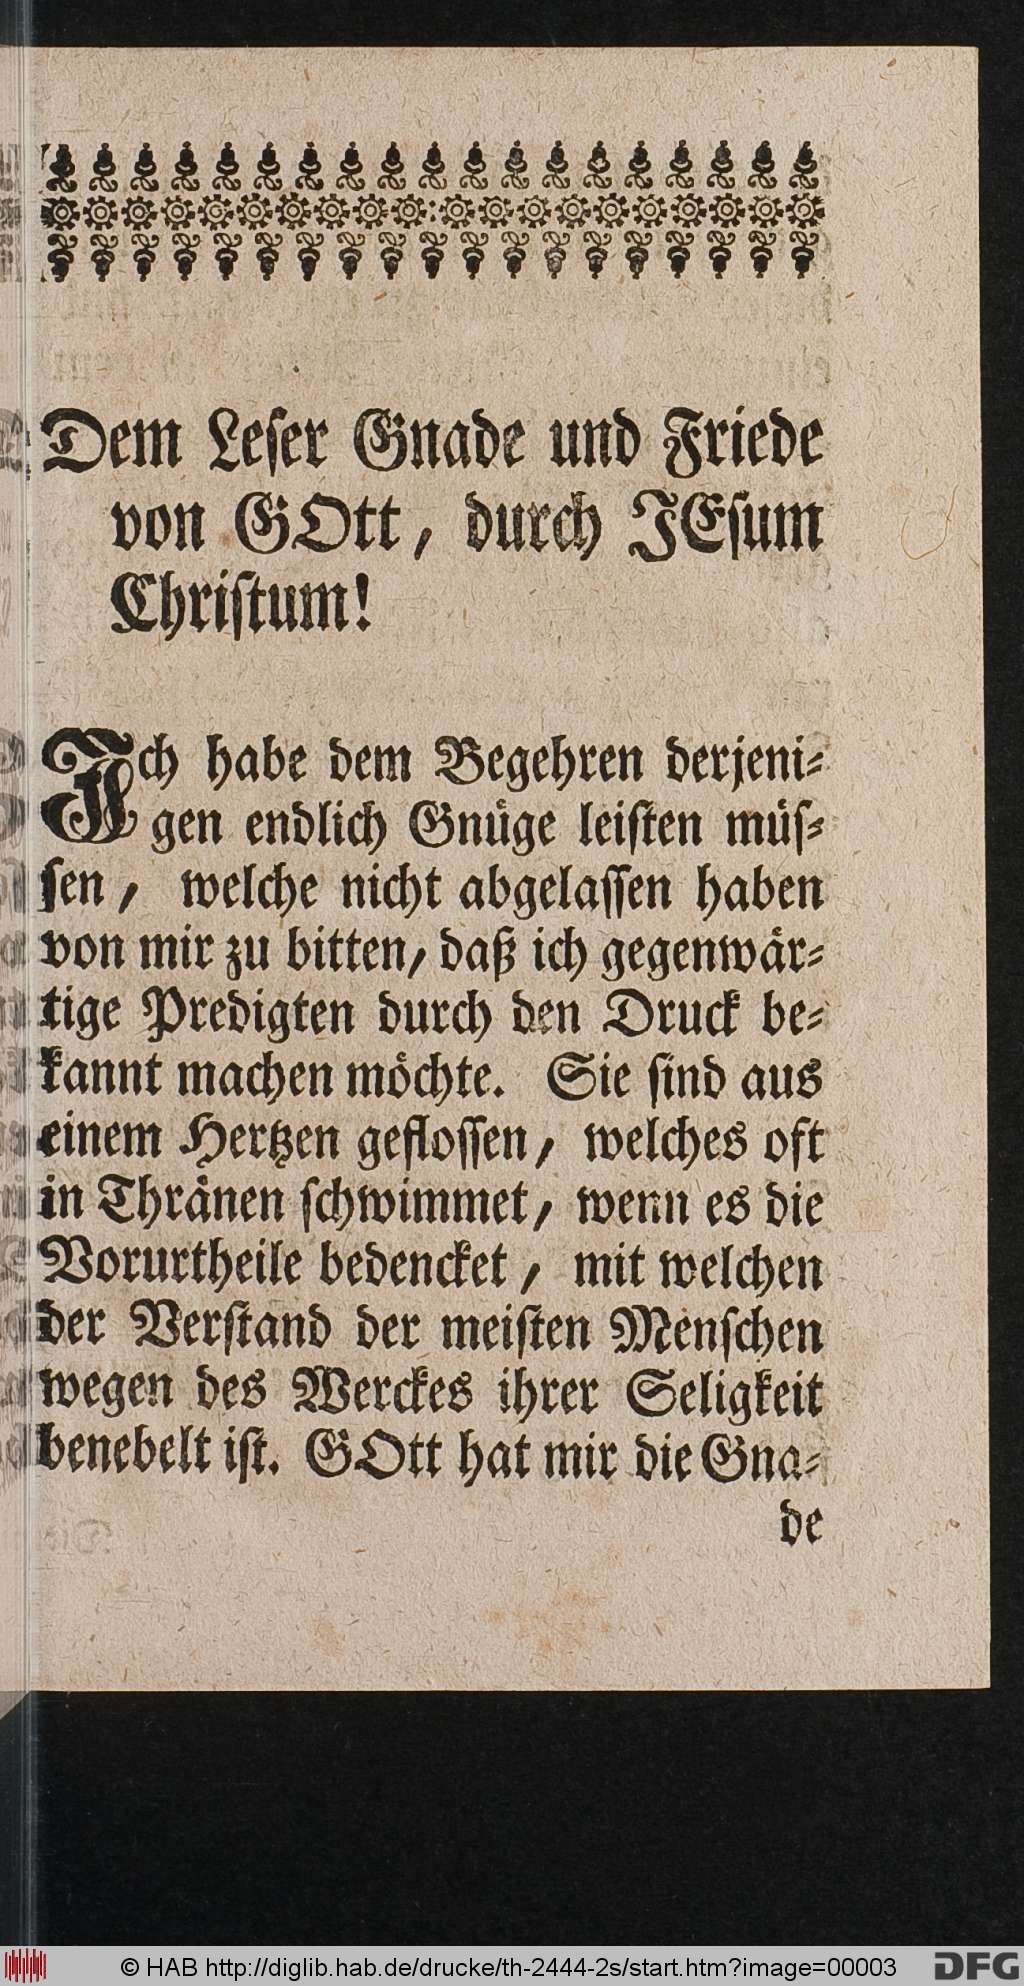 Dem Leſer Gnade und Friede
von GOtt, durch JEſum
Chriſtum!
Ich habe dem Begehren derjeni-
gen endlich Gnuͤge leiſten muͤſ-
ſen, welche nicht abgelaſſen haben
von mir zu bitten, daß ich gegenwaͤr-
tige Predigten durch den Druck be-
kannt machen moͤchte. Sie ſind aus
einem Hertzen gefloſſen, welches oft
in Thraͤnen ſchwimmet, wenn es die
Vorurtheile bedencket, mit welchen
der Verſtand der meiſten Menſchen
wegen des Werckes ihrer Seligkeit
benebelt iſt. GOtt hat mir die Gna-
de
© HAB http://diglib.hab.de/drucke/th-2444-2s/start.htm?image=00003
DFG